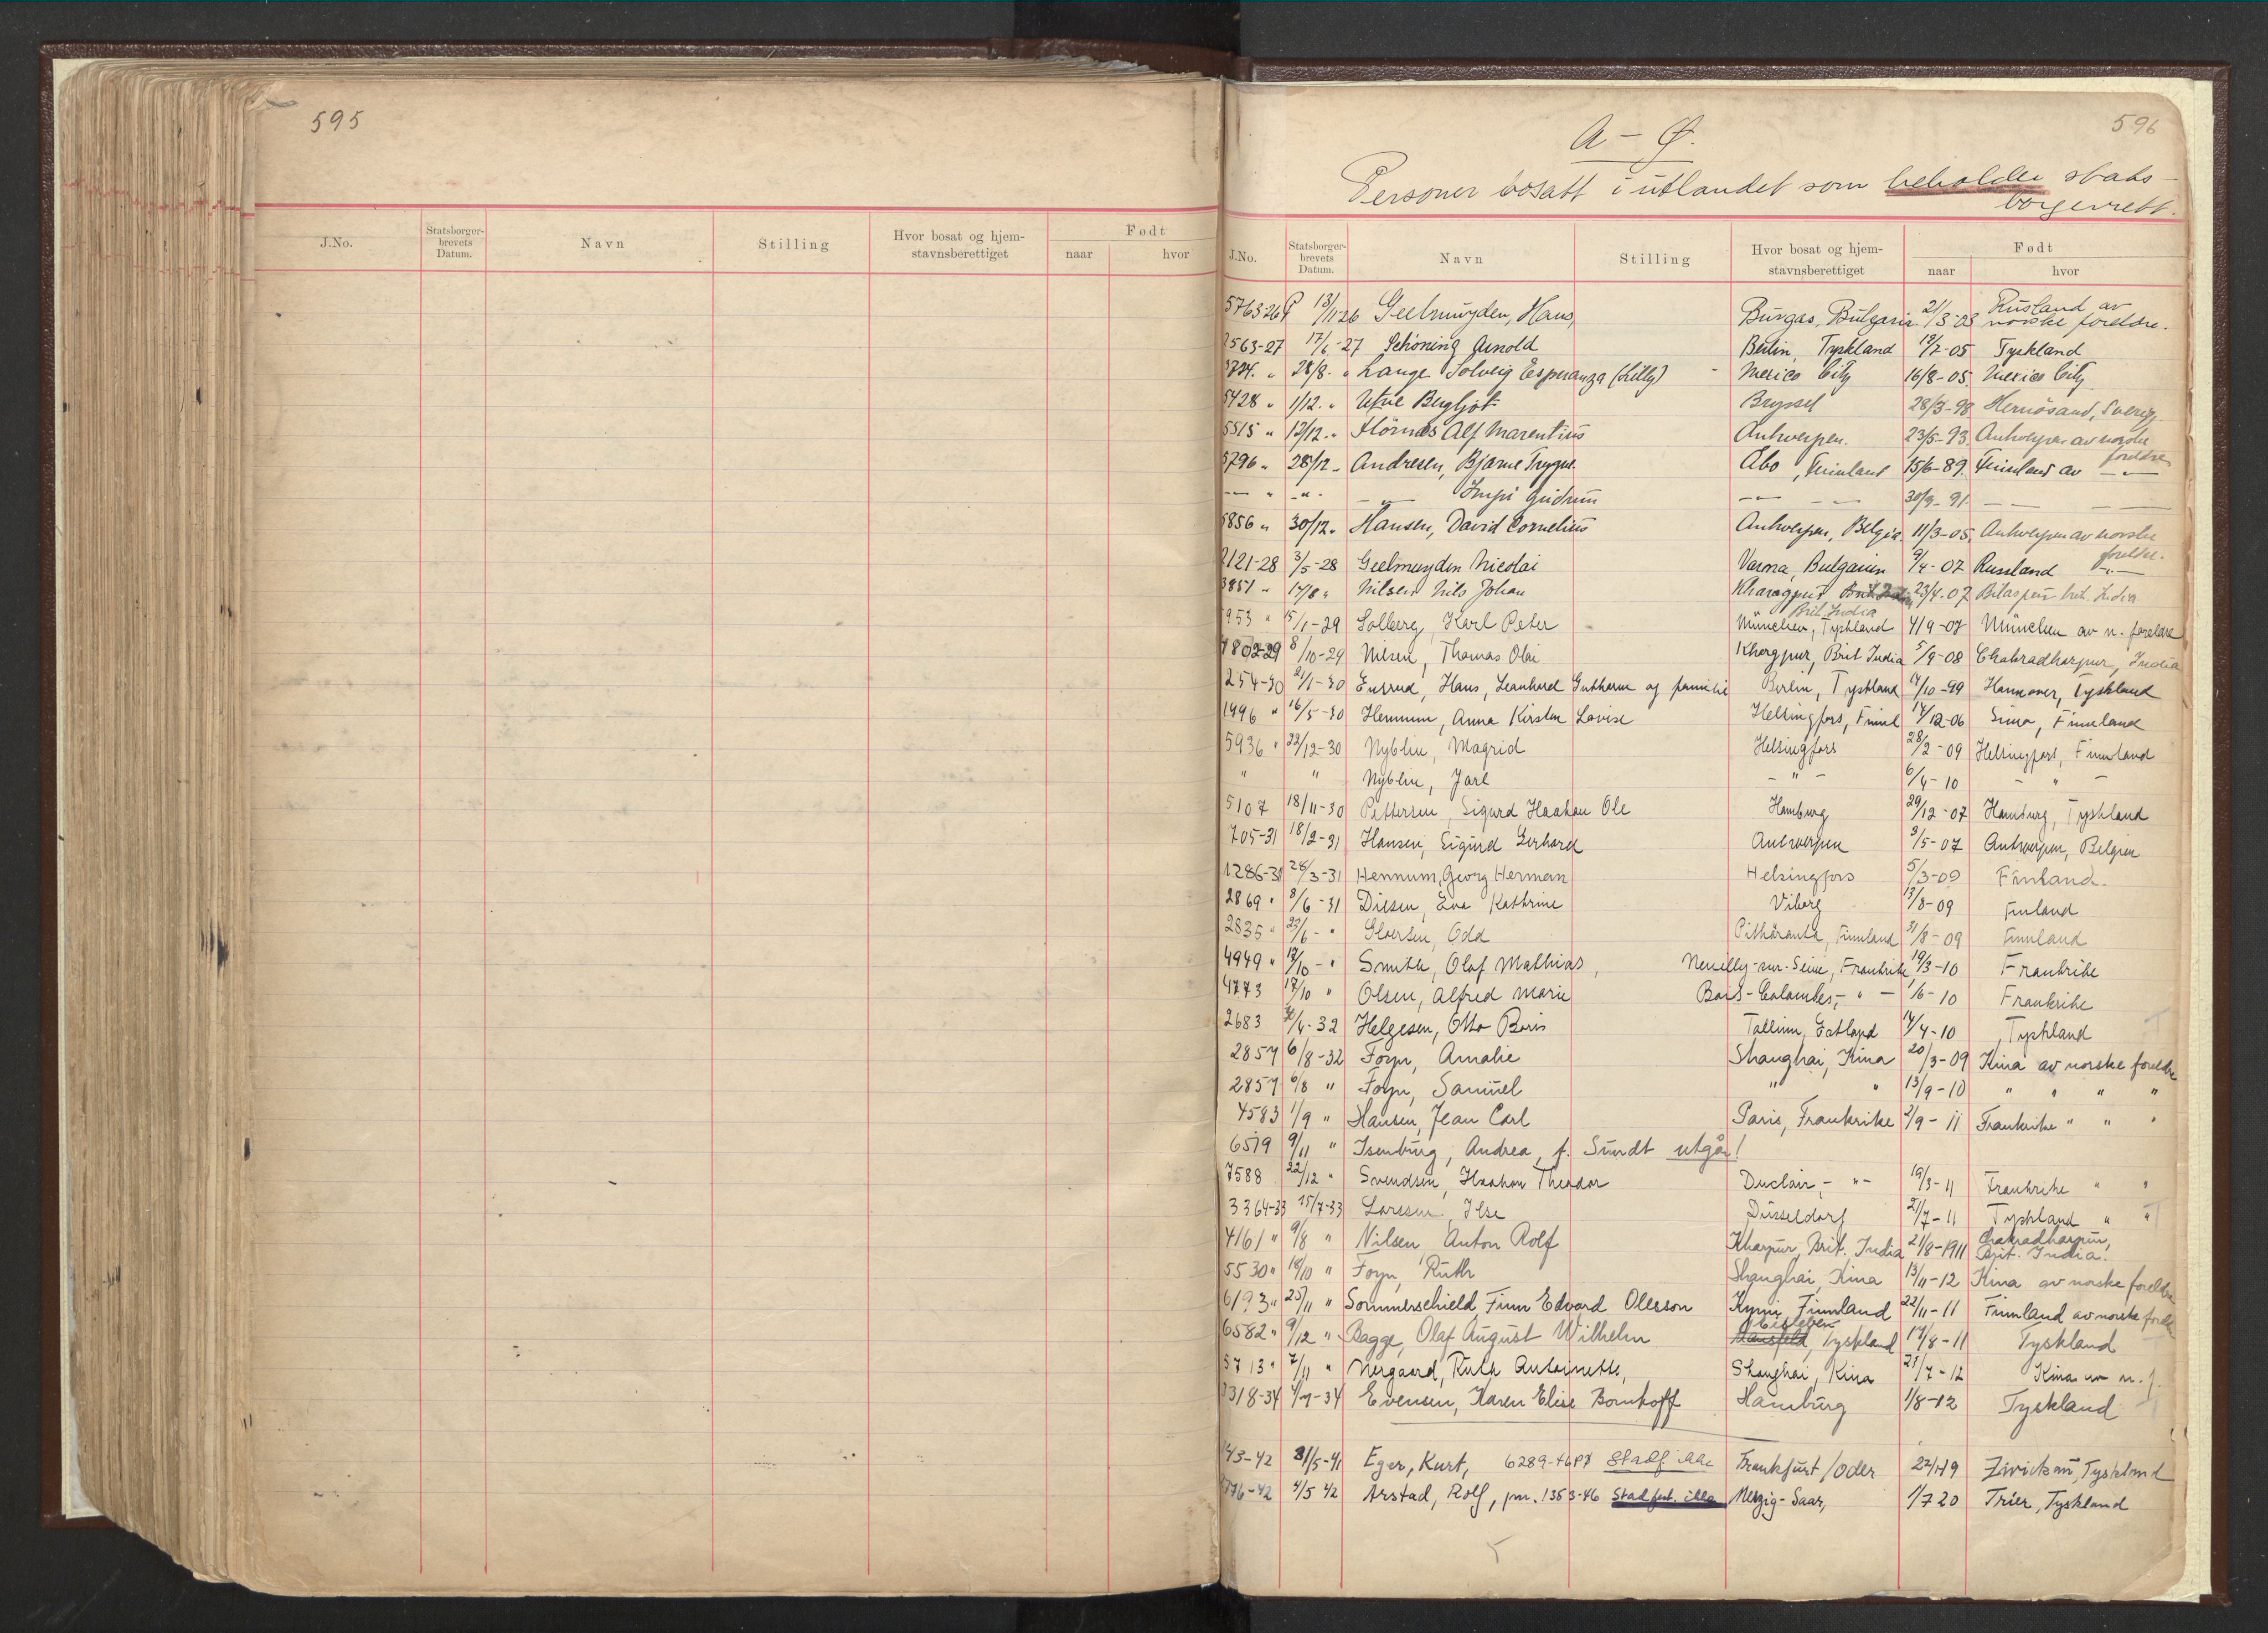 595
J.No.
Statsborger-
brevets
Datum.
Navn
Stilling
Hvor bosat og hjem-
stavnsberettiget
Født
naar
hvor
596
A – Ø.
Personer bosatt i utlandet som beholder stats-
borgerrett.
J.No.
Statsborger-
brevets
Datum.
Navn
Stilling
Hvor bosat og hjem-
stavnsberettiget
Født
naar
hvor
5763-26 13/11-26 Geelmuyden, Hans, Burgas, Bulgaria. 21/3-03 Rusland av
norske foreldre.
2563-27 17/6-27 Schöning Arnold Berlin, Tyskland 19/2-05 Tyskland
28/8. " Lange Solveig Esperanza (Lilly) Mexico City 16/8-05. Mexico City
5428 " 1/12. " Utne Bergljot Bryssel 28/3-98 Hernösand, Sverig.
5515 " 12/12. " Hörnes Alf Marentius Antwerpen. 23/5-93. Antwerpen av norske
foreldre
5796 " 28/12 " Andresen, Bjarne Trygve. Åbo, Finnland 15/6-89. Finnland av — " —
— " — " - " - — " — Impi Gudrun — " — — " — 30/9-91. — — —
5856 " 30/12. Hansen, David Cornelius Antwerpen, Belgia. 11/3-05. Antwerpen av norske
foreldre.
2121-28 3/5-28 Geelmuyden Nicolai Varna, Bulgarien 9/4-07 Russland — " —
3851 " 17/8 " Nilsen Nils Johan Kharagpur 23/4-07 Bilaspur brit. India
Brit. India
953 " 15/1-29 Solberg, Karl Peter München, Tyskland 4/9-07 München av n. foreldre
4802-29 8/10-29 Nilsen, Thomas Olai Khargpur, Brit India 5/9-08 Chakradharpur, India
254-30 21/1-30 Enerud, Hans, Leonhard Guthorm og familie Berlin, Tyskland 14/10-99 Hannover, Tyskland
1996 " 16/5-30 Hennum, Anna Kirsten Lovise Helsingfors, Finnl 14/12-06 Simo, Finnland
5936 " 22/12-30 Nyblin, Magrid Helsingfors 28/2-09 Helsingfors, Finnland
" " Nyblin, Jarl - " - 6/4-10 - " -
5107 18/11-30 Pettersen, Sigurd Haakon Ole Hamburg 29/12-07 Hamburg, Tyskland
705-31 18/2-31 Hansen, Sigurd Gerhard Antwerpen 3/5-07 Antwerpen, Belgien
1286-31 28/3-31 Hennum, Georg Herman Helsingfors 5/3-09 Finland.
2869 " 8/6-31 Diesen, Eva Kathrine Viborg 13/8-09 Finland
2835 " 23/6- " Sversen, Odd Pitkäranta, Finnland 31/8-09 Finnland
4949 " 17/10- " Smith, Olaf Mathias, Neuilly-sur-Seine, Frankrike 19/3-10 Frankrike
4773 17/10 " Olsen, Alfred Marie Bois-Colombes, - " - 1/6-10 Frankrike
2683 30/4-32 Helgesen, Otto Boris Tallinn, Estland 14/4-10 Tyskland
2857 6/8-32 Foyn, Amalie Shanghai, Kina 20/3-09 Kina av norske foreldre
2857 6/8 " Foyn, Samuel " " 13/9-10 " " " "
4583 1/9 " Hansen, Jean Carl Paris, Frankrike 2/9-11 Frankrike " " "
6519 9/11 " Isenburg, Andrea, f. Sundt utgår!
7588 22/12 " Svendsen, Haakon Theodor Duclair, - " - 19/3-11 Frankrike " "
3364-33 15/7-33 Larsen. Ilse Düsseldorf 21/7-11 Tyskland " "
4161 " 9/8 " Nilsen Anton Rolf Kharpur, Brit. India 21/8-1911 Chakradharpur,
Brit. India.
5530 " 18/10 " Foyn, Ruth Shanghai, Kina 13/11-12 Kina av norske foreldre
6193 " 25/11 " Sommerschield, Finn Edvard Olesson Kymi, Finnland 22/11-11 Finnland av norske foreldre
Eisleben
6582 " 9/12 " Bagge, Olaf August Wilhelm Mansfeld, Tyskland 14/8-11 Tyskland
5713 " 7/11 " Nergaard, Ruth Antoinette, Shanghai, Kina 21/7-12 Kina av n. f.
3318-34 4/7-34 Evensen, Karen Elise Bomhoff Hamburg 1/8-12 Tyskland
143-42 31/5-41 Eger, Kurt, 6289-46 P7 Stadf. ikke Frankfurt/Oder 22/1-19 Zwickau, Tyskland
776-42 4/5 42 Arstad, Rolf, jnr. 1353-46 Stadfest. ikke Merzig-Saar, 1/7 20 Trier, Tyskland